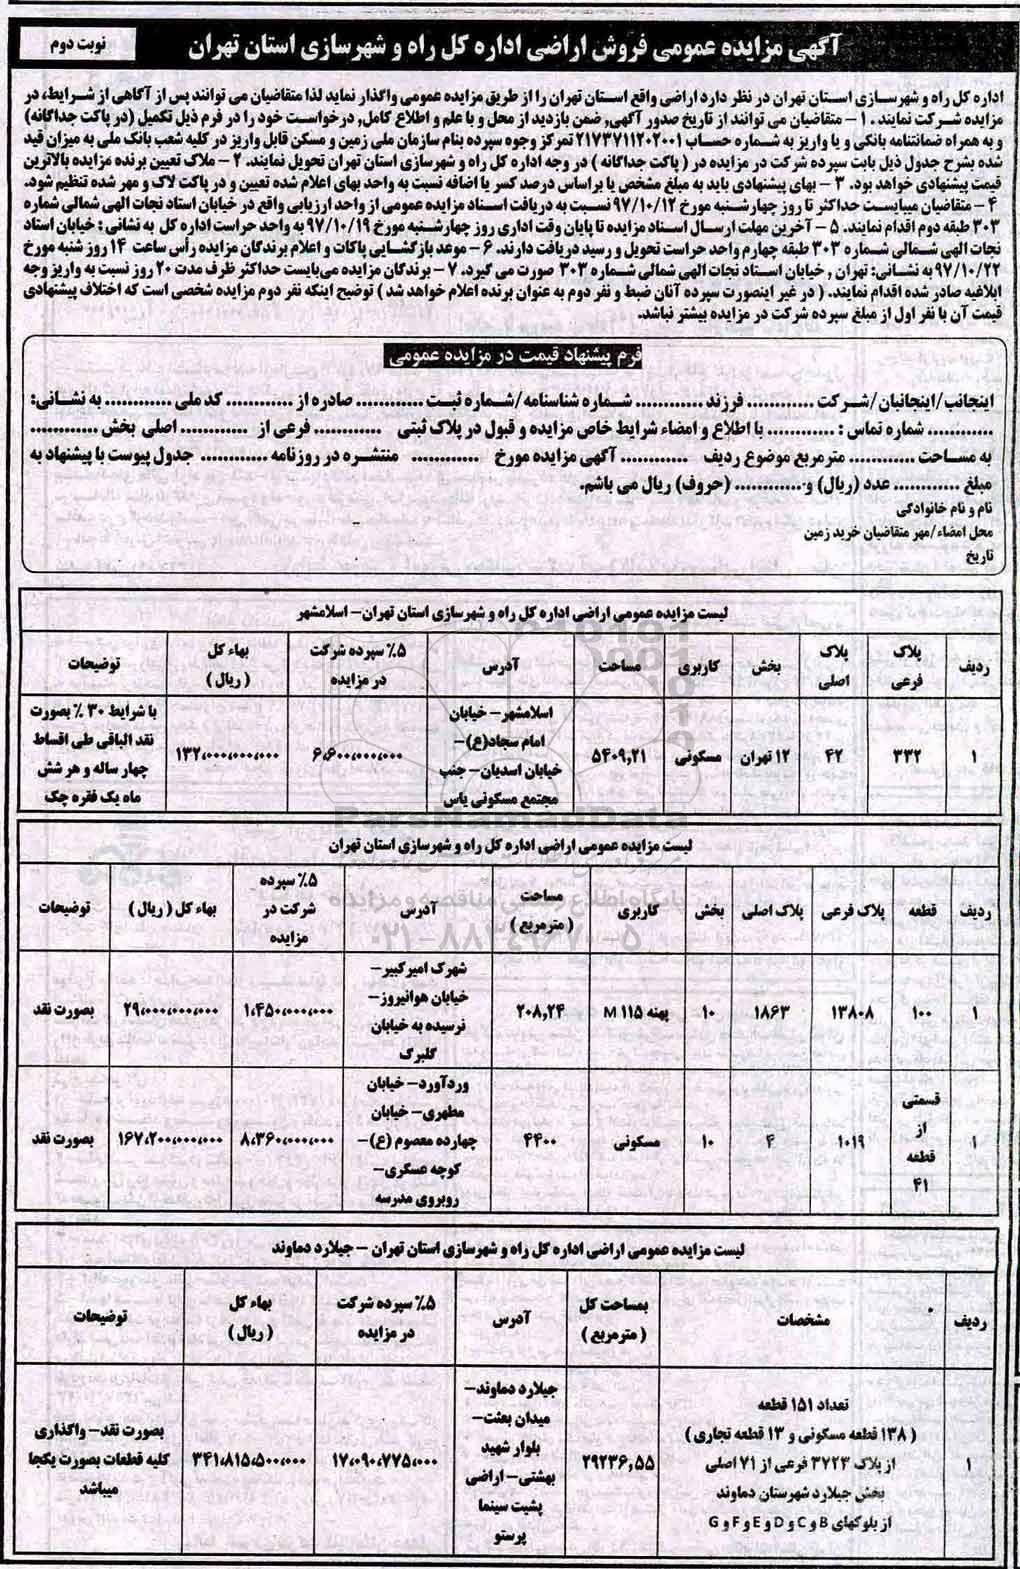 آگهی مزایده عمومی فروش اراضی اداره کل راه و شهرسازی استان تهران
نوبت دوم
اداره کل راه و شهرسازی استان تهران در نظر دارد اراضی واقع استان تهران را از طریق مزایده عمومی واگذار نماید لذا متقاضیان می توانند پس از آگاهی از شرایط، در
مزایده شرکت نمایند . ۱ – متقاضیان می توانند از تاریخ صدور آگهی، ضمن بازدید از محل و با علم و اطلاع کامل، درخواست خود را در فرم ذیل تکمیل (در پاکت جداگانه)
و به همراه ضمانتنامه بانکی و یا واریز به شماره حساب ۲۱۷۳۷۱۱۲۰۲۰۰۱ تمرکز وجوه سپرده بنام سازمان ملی زمین و مسکن قابل واریز در کلیه شعب بانک ملی به میزان قید
شده بشرح جدول ذیل بابت سپرده شرکت در مزایده در ( پاکت جداگانه ) در وجه اداره کل راه و شهرسازی استان تهران تحویل نمایند. ۲ – ملاک تعیین برنده مزایده بالاترین
قیمت پیشنهادی خواهد بود. ۳ – بهای پیشنهادی باید به مبلغ مشخص یا بر اساس درصد کسر یا اضافه نسبت به واحد بهای اعلام شده تعیین و در پاکت لاک و مهر شده تنظیم شود.
۴ – متقاضیان میبایست حداکثر تا روز چهارشنبه مورخ ۹۷/۱۰/۱۲ نسبت به دریافت اسناد مزایده عمومی از واحد ارزیابی واقع در خیابان استاد نجات الهی شمالی شماره
۳۰۳ طبقه دوم اقدام نمایند. ۵ – آخرین مهلت ارسال اسناد مزایده تا پایان وقت اداری روز چهارشنبه مورخ ۹۷/۱۰/۱۹ به واحد حراست اداره کل به نشانی : خیابان استاد
نجات الهی شمالی شماره ۳۰۳ طبقه چهارم واحد حراست تحویل و رسید دریافت دارند. ۶ – موعد بازگشایی پاکات و اعلام برندگان مزایده رأس ساعت ۱۴ روز شنبه مورخ
۹۷/۱۰/۲۲ به نشانی: تهران , خیابان استاد نجات الهی شمالی شماره ۳۰۳ صورت می گیرد. ۷ – برندگان مزایده می‌بایست حداکثر ظرف مدت ۲۰ روز نسبت به واریز وجه
ابلاغیه صادر شده اقدام نمایند. ( در غیر اینصورت سپرده آنان ضبط و نفر دوم به عنوان برنده اعلام خواهد شد ) توضیح اینکه نفر دوم مزایده شخصی است که اختلاف پیشنهادی
قیمت آن با نفر اول از مبلغ سپرده شرکت در مزایده بیشتر نباشد.
فرم پیشنهاد قیمت در مزایده عمومی
اینجانب/اینجانبان/شرکت ............ فرزند ............ شماره شناسنامه/شماره ثبت ............ صادره از ............ کد ملی ............ به نشانی:
............ شماره تماس : ............ با اطلاع و امضاء شرایط خاص مزایده و قبول در پلاک ثبتی ............ فرعی از ............ اصلی بخش ............
به مساحت ............ مترمربع موضوع ردیف ............ آگهی مزایده مورخ ............ منتشره در روزنامه ............ جدول پیوست با پیشنهاد به
مبلغ ............ عدد (ریال) و............ (حروف) ریال می باشم.
نام و نام خانوادگی
محل امضاء/مهر متقاضیان خرید زمین
تاریخ
لیست مزایده عمومی اراضی اداره کل راه و شهرسازی استان تهران– اسلامشهر
ردیف | پلاک فرعی | پلاک اصلی | بخش | کاربری | مساحت | آدرس | ۵٪ سپرده شرکت در مزایده | بهاء کل ( ریال ) | توضیحات
۱ | ۳۳۲ | ۴۲ | ۱۲ تهران | مسکونی | ۵۴۰۹,۲۱ | اسلامشهر– خیابان امام سجاد(ع)– خیابان اسدیان– جنب مجتمع مسکونی یاس | ۶،۶۰۰،۰۰۰،۰۰۰ | ۱۳۲،۰۰۰،۰۰۰،۰۰۰ | با شرایط ۳۰ ٪ بصورت نقد الباقی طی اقساط چهار ساله و هر شش ماه یک فقره چک
ParsNamadData
پایگاه اطلاع رسانی مناقصه و مزایده
۰۲۱-۸۸۳۴۹۶۷۰-۵
لیست مزایده عمومی اراضی اداره کل راه و شهرسازی استان تهران
ردیف | قطعه | پلاک فرعی | پلاک اصلی | بخش | کاربری | مساحت ( مترمربع ) | آدرس | ۵٪ سپرده شرکت در مزایده | بهاء کل ( ریال ) | توضیحات
۱ | ۱۰۰ | ۱۳۸۰۸ | ۱۸۶۳ | ۱۰ | پهنه M ۱۱۵ | ۲۰۸,۲۴ | شهرک امیرکبیر– خیابان هوانیروز– نرسیده به خیابان گلبرگ | ۱،۴۵۰،۰۰۰،۰۰۰ | ۲۹،۰۰۰،۰۰۰،۰۰۰ | بصورت نقد
۱ | قسمتی از قطعه ۴۱ | ۱۰۱۹ | ۴ | ۱۰ | مسکونی | ۴۴۰۰ | وردآورد– خیابان مطهری– خیابان چهارده معصوم (ع)– کوچه عسکری– روبروی مدرسه | ۸،۳۶۰،۰۰۰،۰۰۰ | ۱۶۷،۲۰۰،۰۰۰،۰۰۰ | بصورت نقد
لیست مزایده عمومی اراضی اداره کل راه و شهرسازی استان تهران – جیلارد دماوند
ردیف | مشخصات | بمساحت کل ( مترمربع ) | آدرس | ۵٪ سپرده شرکت در مزایده | بهاء کل ( ریال ) | توضیحات
۱ | تعداد ۱۵۱ قطعه ( ۱۳۸ قطعه مسکونی و ۱۳ قطعه تجاری ) از پلاک ۳۷۲۳ فرعی از ۷۱ اصلی بخش جیلارد شهرستان دماوند از بلوکهای B و C و D و E و F و G | ۲۹۲۳۶,۵۵ | جیلارد دماوند– میدان بعثت– بلوار شهید بهشتی– اراضی پشیت سینما پرستو | ۱۷،۰۹۰،۷۷۵،۰۰۰ | ۳۴۱،۸۱۵،۵۰۰،۰۰۰ | بصورت نقد– واگذاری کلیه قطعات بصورت یکجا میباشد